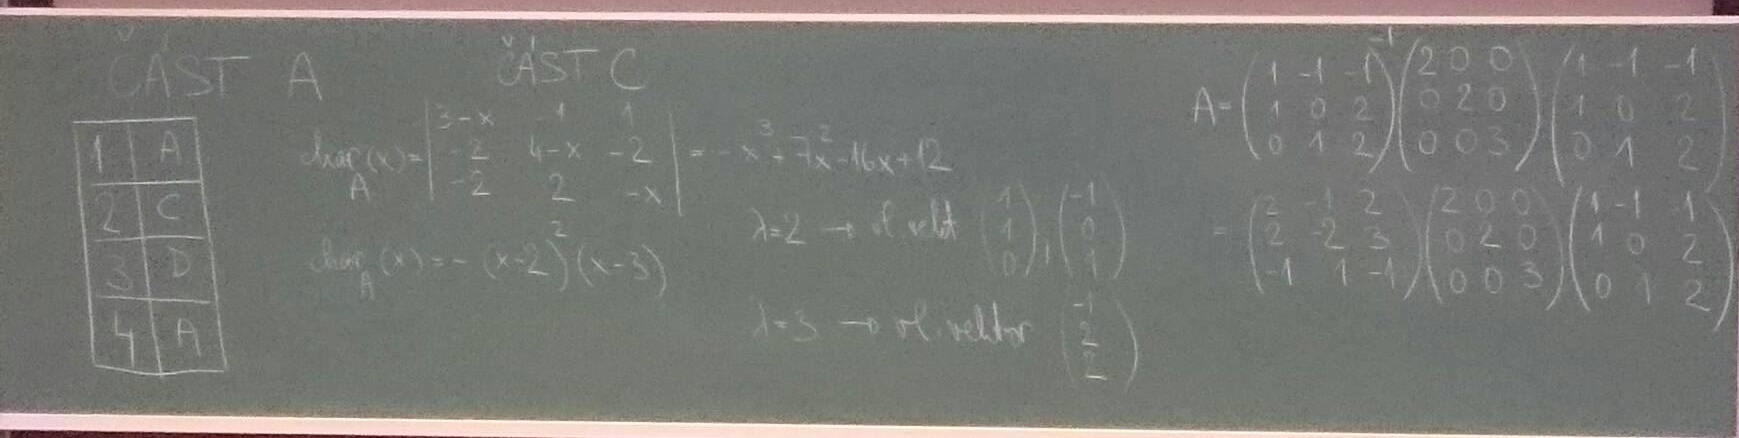 ČÁST A
1 A
2 C
3 D
4 A
ČÁST C
char_A(x) = | 3-x -1 1 |
| -2 4-x -2 |
| -2 2 -x |
= -x³ + 7x² - 16x + 12
char_A(x) = -(x-2)²(x-3)
λ=2 → vl. vekt (1 1 0), (-1 0 1)
λ=3 → vl. vektor (-1 2 2)
A = (1 -1 -1; 1 0 2; 0 1 2)⁻¹ (2 0 0; 0 2 0; 0 0 3) (1 -1 -1; 1 0 2; 0 1 2)
= (2 -1 2; 2 -2 3; -1 1 -1) (2 0 0; 0 2 0; 0 0 3) (1 -1 -1; 1 0 2; 0 1 2)